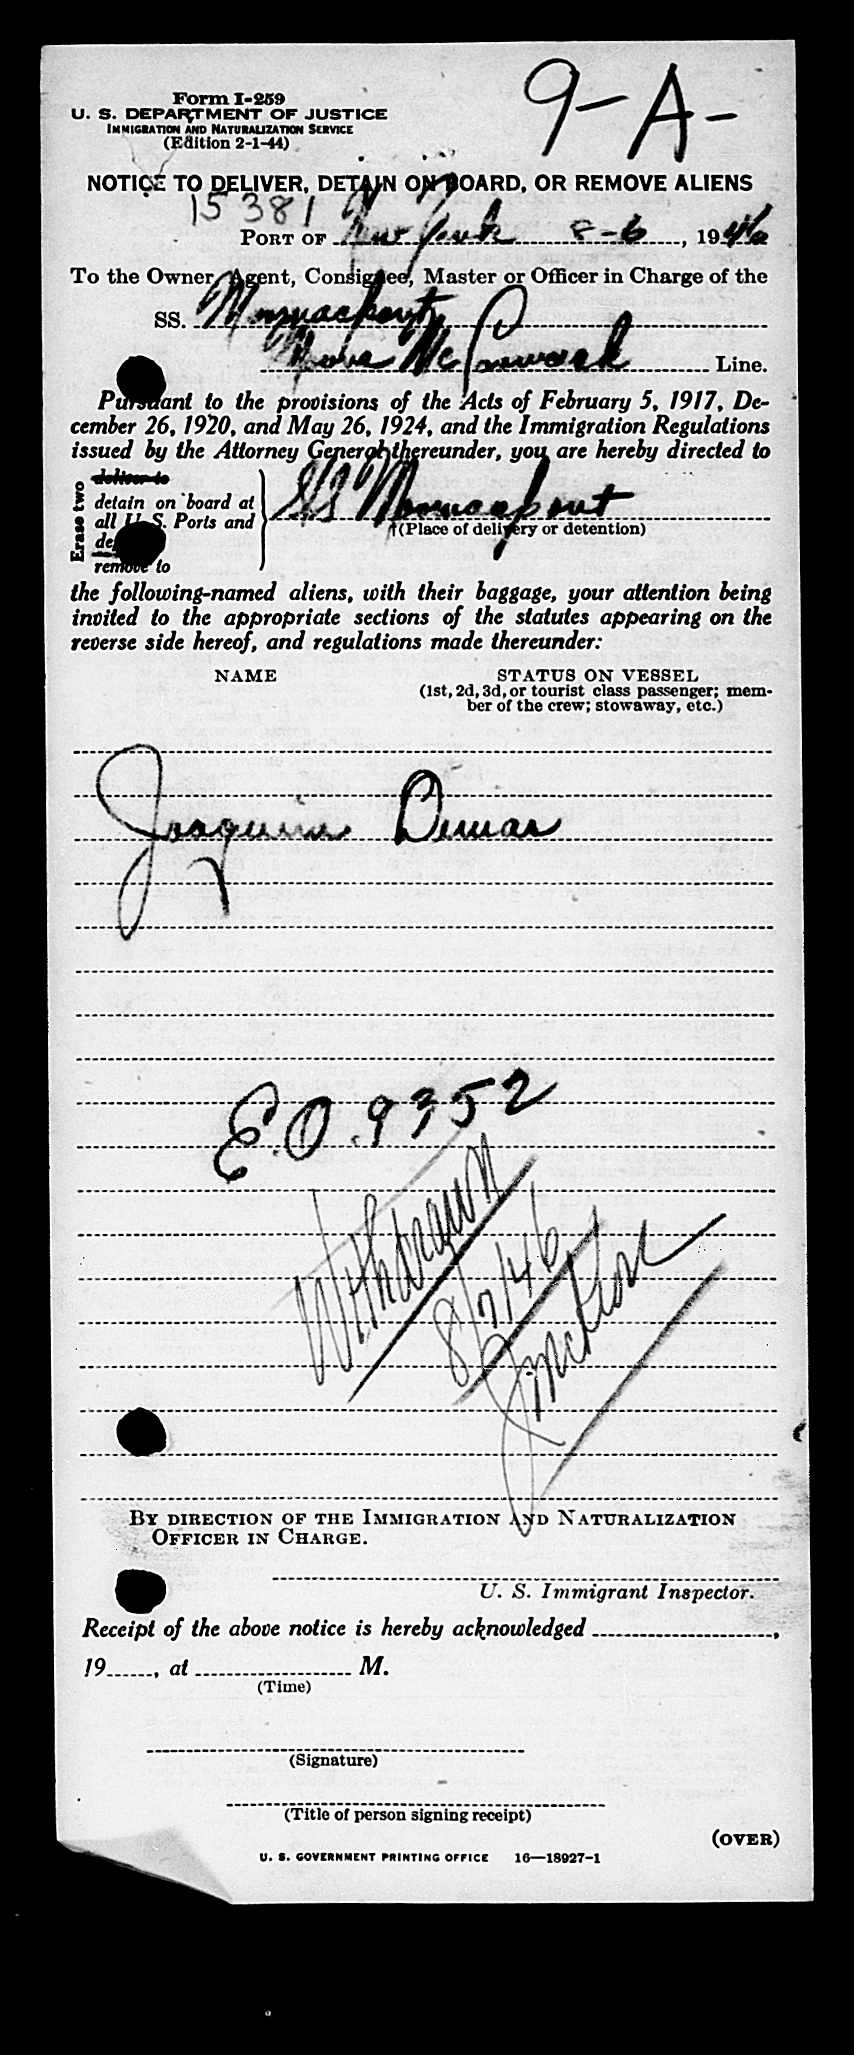 9-A-
Form I-259
U. S. DEPARTMENT OF JUSTICE
IMMIGRATION AND NATURALIZATION SERVICE
(Edition 2-1-44)
NOTICE TO DELIVER, DETAIN ON BOARD, OR REMOVE ALIENS
15381
PORT OF New York 8-6, 1946
To the Owner, Agent, Consignee, Master or Officer in Charge of the
SS. Mormacport
Moore McCormack Line.
Pursuant to the provisions of the Acts of February 5, 1917, De-
cember 26, 1920, and May 26, 1924, and the Immigration Regulations
issued by the Attorney General thereunder, you are hereby directed to
Erase two
deliver to
detain on board at
all U. S. Ports and
remove to
SS Mormacport
(Place of delivery or detention)
the following-named aliens, with their baggage, your attention being
invited to the appropriate sections of the statutes appearing on the
reverse side hereof, and regulations made thereunder:
NAME STATUS ON VESSEL
(1st, 2d, 3d, or tourist class passenger; mem-
ber of the crew; stowaway, etc.)
Joaquim
E.O. 9352
Withdrawn
8/7/46
BY DIRECTION OF THE IMMIGRATION AND NATURALIZATION
OFFICER IN CHARGE.
U. S. Immigrant Inspector.
Receipt of the above notice is hereby acknowledged ,
19 , at M.
(Time)
(Signature)
(Title of person signing receipt)
(OVER)
U. S. GOVERNMENT PRINTING OFFICE 16—18927-1